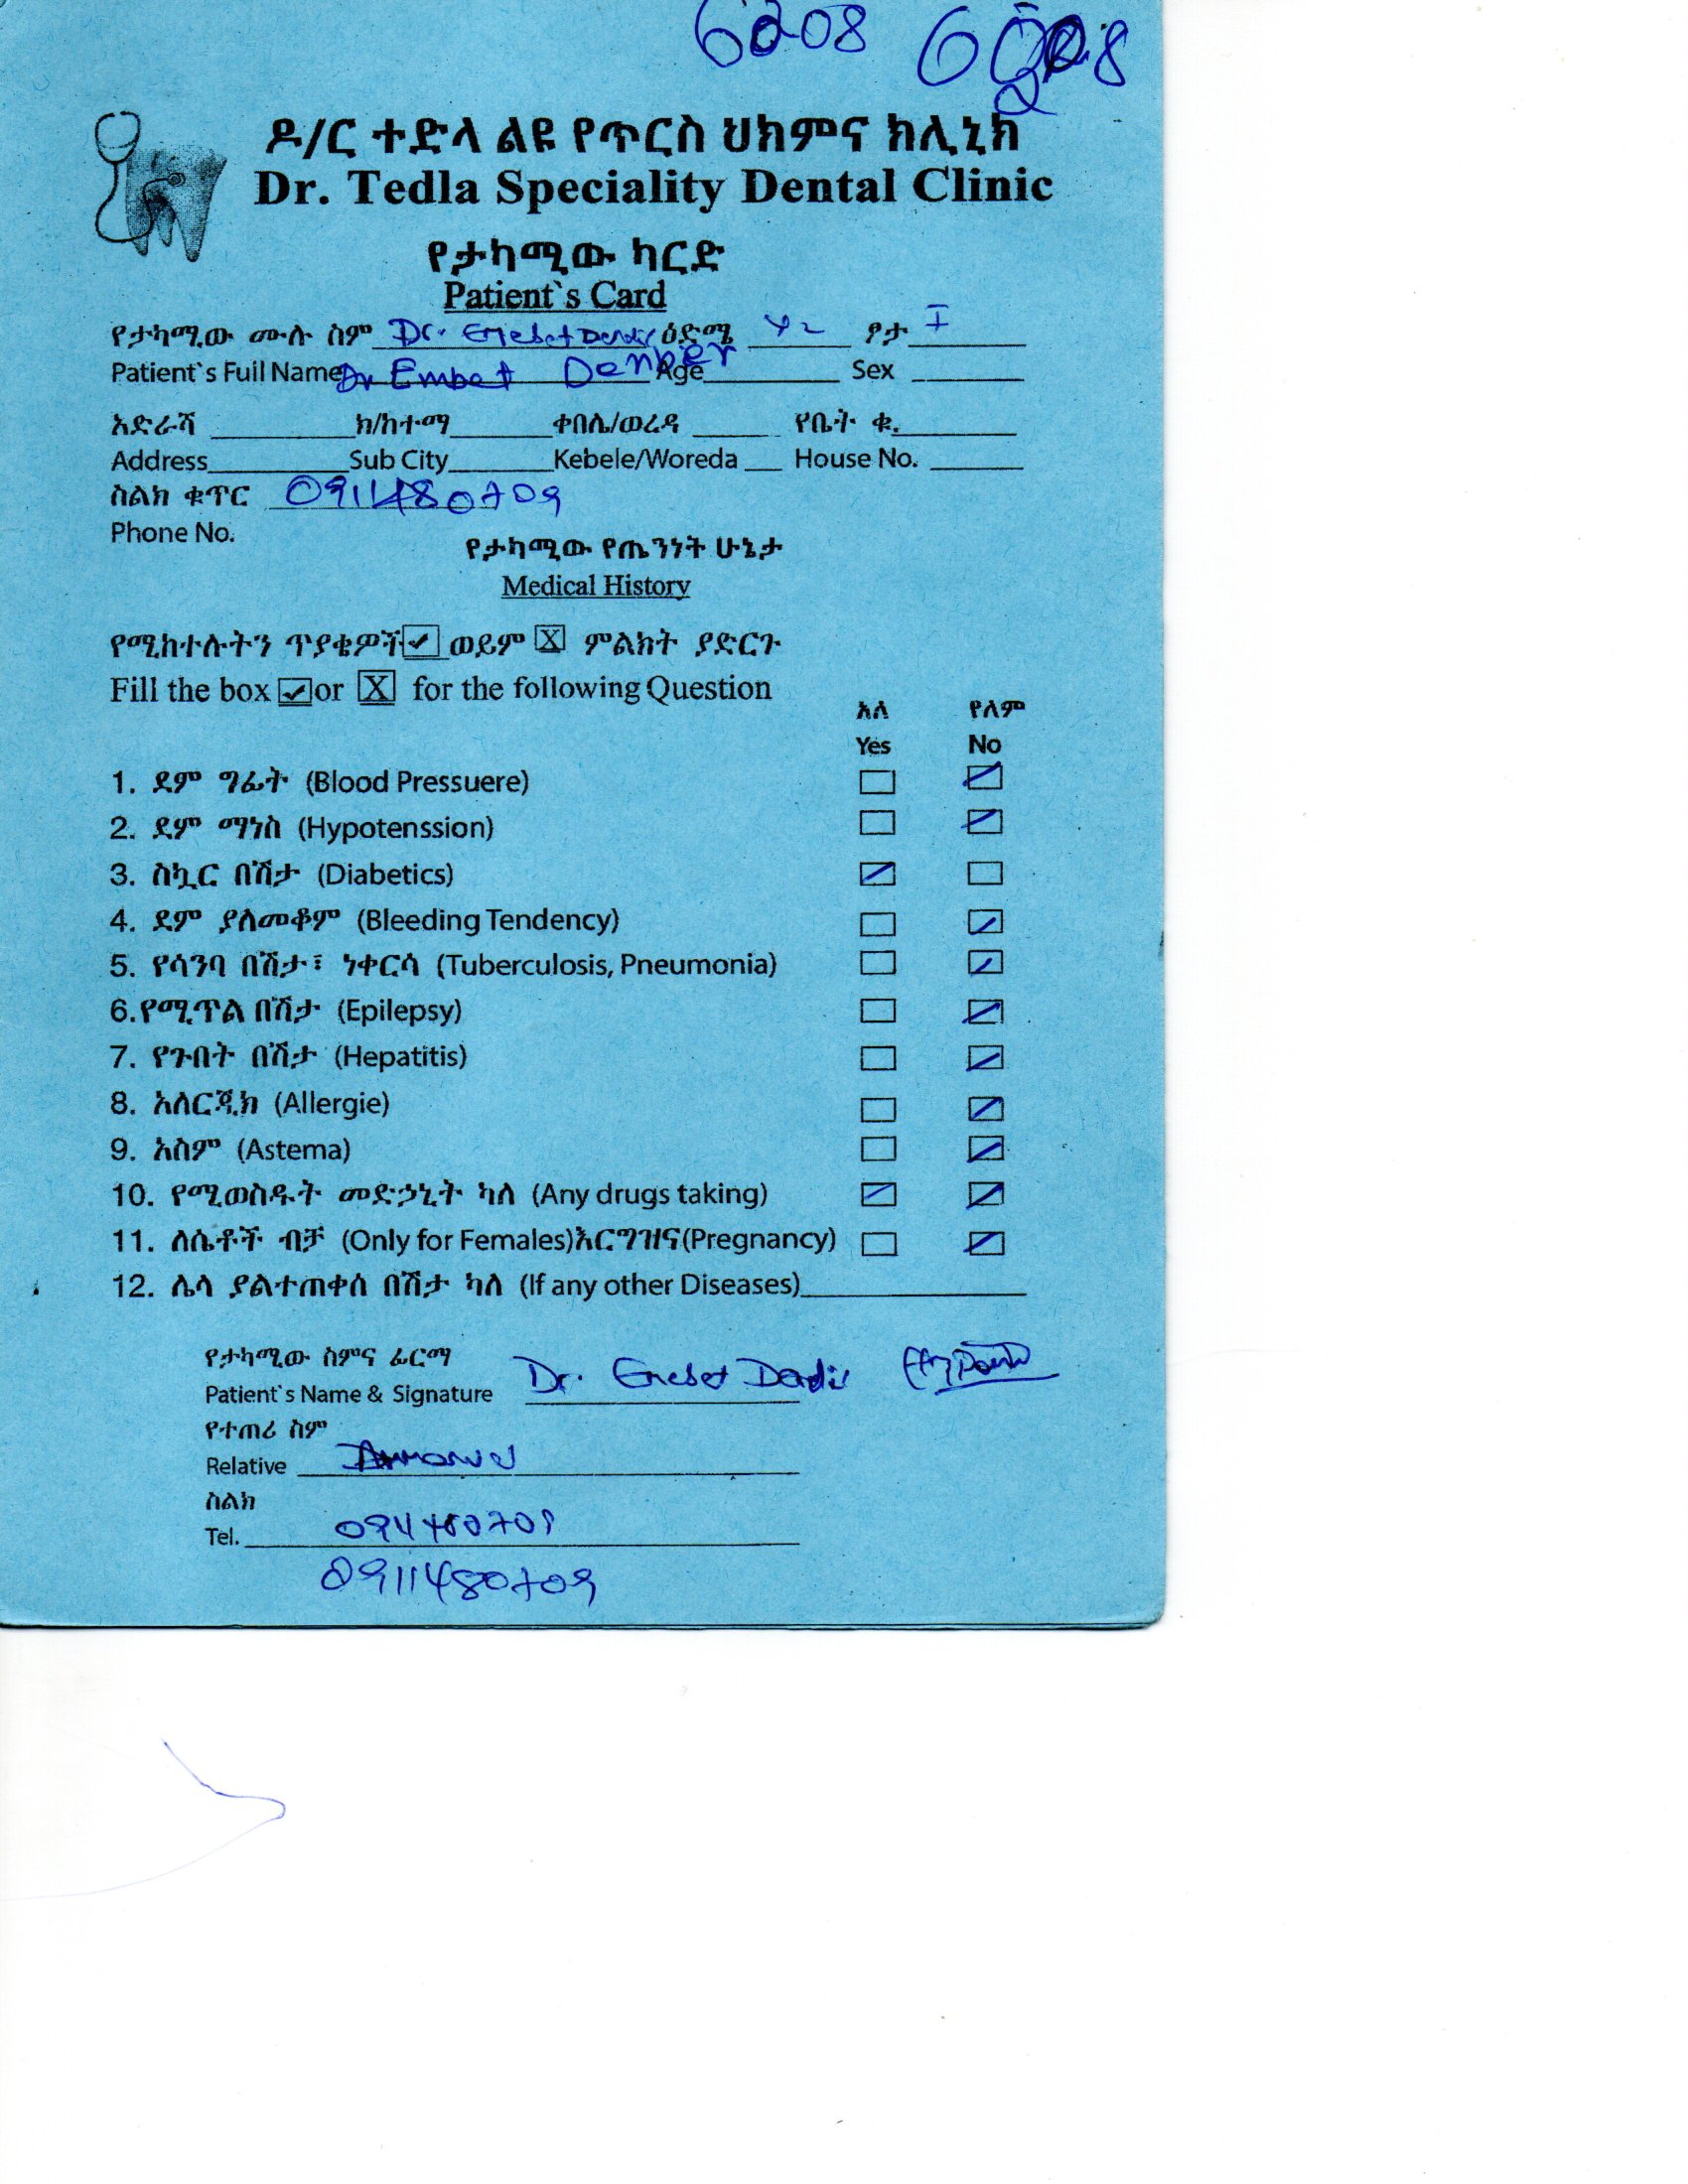 6208 6208
ዶ/ር ተድላ ልዩ የጥርስ ህክምና ክሊኒክ
Dr. Tedla Speciality Dental Clinic
የታካሚው ካርድ
Patient`s Card
የታካሚው ሙሉ ስም Dr. ዕድሜ 42 ፆታ
Patient`s Full Name Dr Embet Denber Age Sex
አድራሻ ክ/ከተማ ቀበሌ/ወረዳ የቤት ቁ.
Address Sub City Kebele/Woreda House No.
ስልክ ቁጥር 0911480709
Phone No.
የታካሚው የጤንነት ሁኔታ
Medical History
የሚከተሉትን ጥያቄዎች ✓ ወይም X ምልክት ያድርጉ
Fill the box ✓ or X for the following Question
አለ የለም
Yes No
1. ደም ግፊት (Blood Pressuere)
2. ደም ማነስ (Hypotenssion)
3. ስኳር በሽታ (Diabetics)
4. ደም ያለመቆም (Bleeding Tendency)
5. የሳንባ በሽታ፣ ነቀርሳ (Tuberculosis, Pneumonia)
6. የሚጥል በሽታ (Epilepsy)
7. የጉበት በሽታ (Hepatitis)
8. አለርጂክ (Allergie)
9. አስም (Astema)
10. የሚወስዱት መድኃኒት ካለ (Any drugs taking)
11. ለሴቶች ብቻ (Only for Females)እርግዝና(Pregnancy)
12. ሌላ ያልተጠቀሰ በሽታ ካለ (If any other Diseases)
የታካሚው ስምና ፊርማ
Patient`s Name & Signature Dr.
የተጠሪ ስም
Relative
ስልክ
Tel.
0911480709